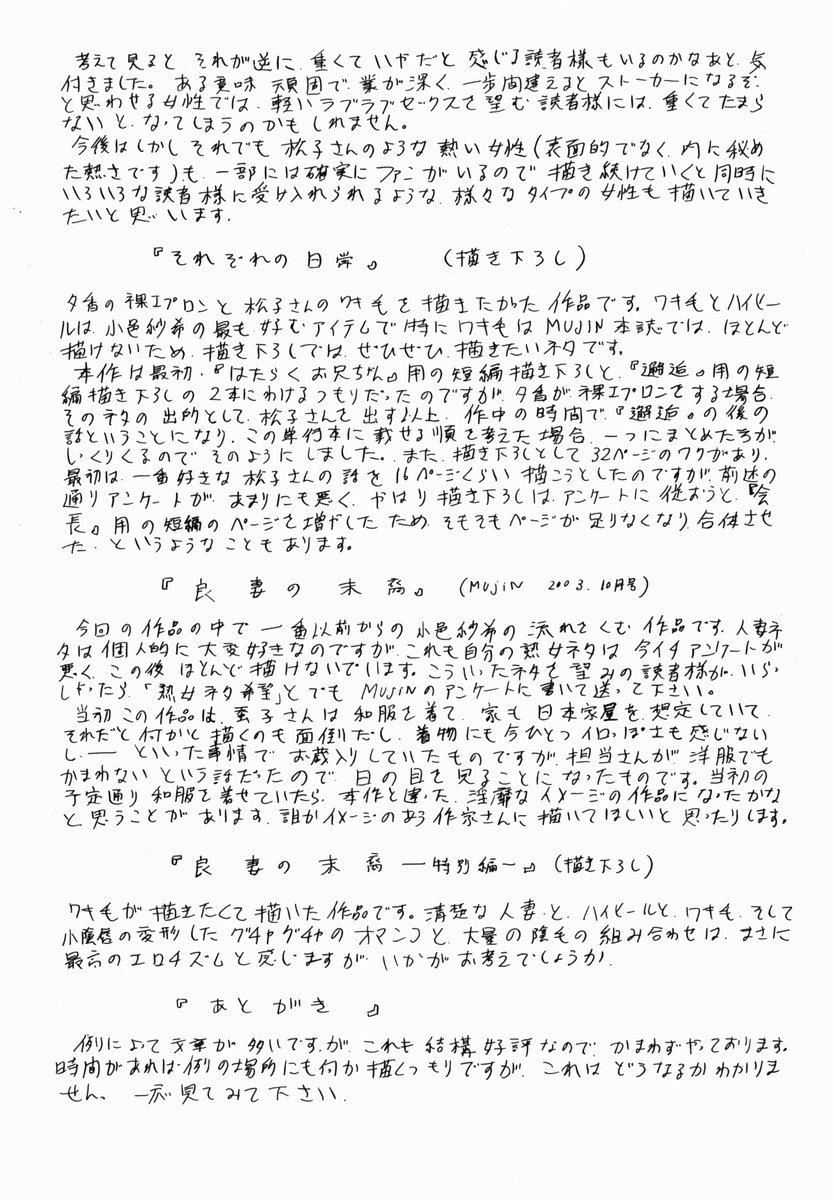 考えて見ると それが逆に、重くていやだと 感じる読者様もいるのかなあと、気
付きました。 ある意味 頑固で、業が深く、一歩間違えるとストーカーになるぞ
と思わせる女性では、軽いラブラブセックスを望む読者様には、重くてたまら
ないと、なってしまうのかもしれません。
今後はしかし それでも 松子さんのような 熱い女性(表面的でなく、内に秘め
た熱さです)も、一部には確実にファンがいるので 描き続けていくと同時に
いろいろな読者様に受け入れられるような、様々なタイプの女性も描いていき
たいと思います。
『それぞれの日常』 (描き下ろし)
夕香の裸エプロンと 松子さんのワキ毛を描きたかった作品です。ワキ毛とハイヒー
ルは、小邑紗希の最も好むアイテムで特にワキ毛はMUJIN本誌では、ほとんど
描けないため、描き下ろしでは、ぜひぜひ、描きたいネタです。
本作は最初、『はたらくお兄ちゃん』用の短編描き下ろしと、『邂逅』用の短
編描き下ろしの 2本にわけるつもりだったのですが、夕香が、裸エプロンをする場合、
そのネタの出所として、松子さんを出す以上、作中の時間で、『邂逅』の後の
話ということになり、この単行本に載せる順を考えた場合、一つにまとめた方が、
しっくりくるので そのようにしました。また、描き下ろしとして32ページのワクがあり、
最初は、一番好きな松子さんの話を16ページくらい描こうとしたのですが、前述の
通りアンケートが、あまりにも悪く、やはり描き下ろしは、アンケートに従おうと、『会
長』用の短編のページを増やしたため、そもそもページが足りなくなり、合体させ
た、というようなこともあります。
『良妻の末裔』 (MUJIN 2003.10月号)
今回の作品の中で一番以前からの小邑紗希の流れをくむ作品です。人妻ネ
タは個人的に大変好きなのですが、これも自分の熟女ネタは今イチアンケートが
悪く、この後ほとんど描けないでいます。こういったネタを望みの読者様が、いらっ
しゃったら、「熟女ネタ希望」とでもMUJINのアンケートに書いて送って下さい。
当初この作品は、 子さんは和服を着て、家も日本家屋を想定していて、
それだと何かと描くのも面倒だし、着物にも今ひとつイロっぽさも感じない
し、── といった事情でお蔵入りしていたものですが、担当さんが洋服でも
かまわないという話だったので、日の目を見ることになったものです。当初の
予定通り和服を着せていたら、本作と違った、淫靡なイメージの作品になったかな
と思うことがあります。誰かイメージのある作家さんに描いてほしいと思ったりします。
『良妻の末裔―特別編―』(描き下ろし)
ワキ毛が描きたくて描いた作品です。清楚な人妻と、ハイヒールと、ワキ毛、そして
小陰唇の変形したグチャグチャのオマンコと、大量の陰毛の組み合わせは、まさに
最高のエロチズムと感じますが、いかがお考えでしょうか。
『あとがき 』
例によって文章が多いですが、これも結構好評なので、かまわずやっております。
時間があれば例の場所にも何か描くつもりですが、これはどうなるかわかりま
せん。 一応見てみて下さい。